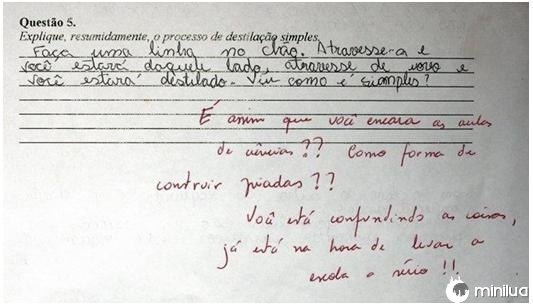 Questão 5.
Explique, resumidamente, o processo de destilação simples.
Faça uma linha no chão. Atravesse-a e
você estará daquele lado, atravesse de novo e
você estará destilado. Viu como é simples?
É assim que você encara as aulas
de ciências?? Como forma de
construir piadas??
Você está confundindo as coisas,
já está na hora de levar a
escola a sério!!
minilua